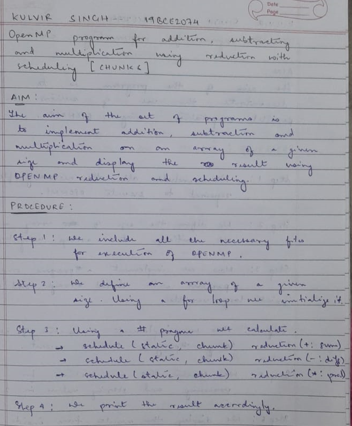 KULVIR SINGH 19BCE2074
Date
Page
OpenMP program for addition, subtracting
and multiplication using reduction with
scheduling [CHUNKS]
AIM:
The aim of the set of programs is
to implement addition, subtraction and
multiplication on an array of a given
size and display the result using
OPENMP reduction and scheduling.
PROCEDURE:
Step 1: We include all the necessary files
for execution of OPENMP.
Step 2: We define an array of a given
size. Using a for loop we initialize it.
Step 3: Using a # pragma we calculate.
→ schedule (static, chunk) reduction (+: sum)
→ schedule (static, chunk) reduction (-: diff)
→ schedule (static, chunk) reduction (*: prod)
Step 4: We print the result accordingly.